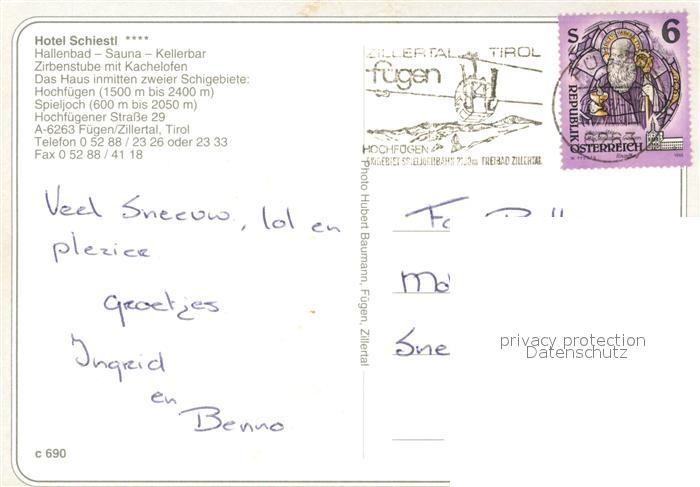 Hotel Schiestl ****
Hallenbad – Sauna – Kellerbar
Zirbenstube mit Kachelofen
Das Haus inmitten zweier Schigebiete:
Hochfügen (1500 m bis 2400 m)
Spieljoch (600 m bis 2050 m)
Hochfügener Straße 29
A-6263 Fügen/Zillertal, Tirol
Telefon 0 52 88 / 23 26 oder 23 33
Fax 0 52 88 / 41 18
Veel Sneeuw, lol en
plezier
Groetjes
Ingrid
en
Benno
c 690
Photo Hubert Baumann, Fügen, Zillertal
ZILLERTAL TIROL
fügen
HOCHFÜGEN
SKIGEBIET SPIELJOCHBAHN FREIBAD ZILLERTAL
S 6
REPUBLIK
ÖSTERREICH
Fa
Sne
privacy protection
Datenschutz